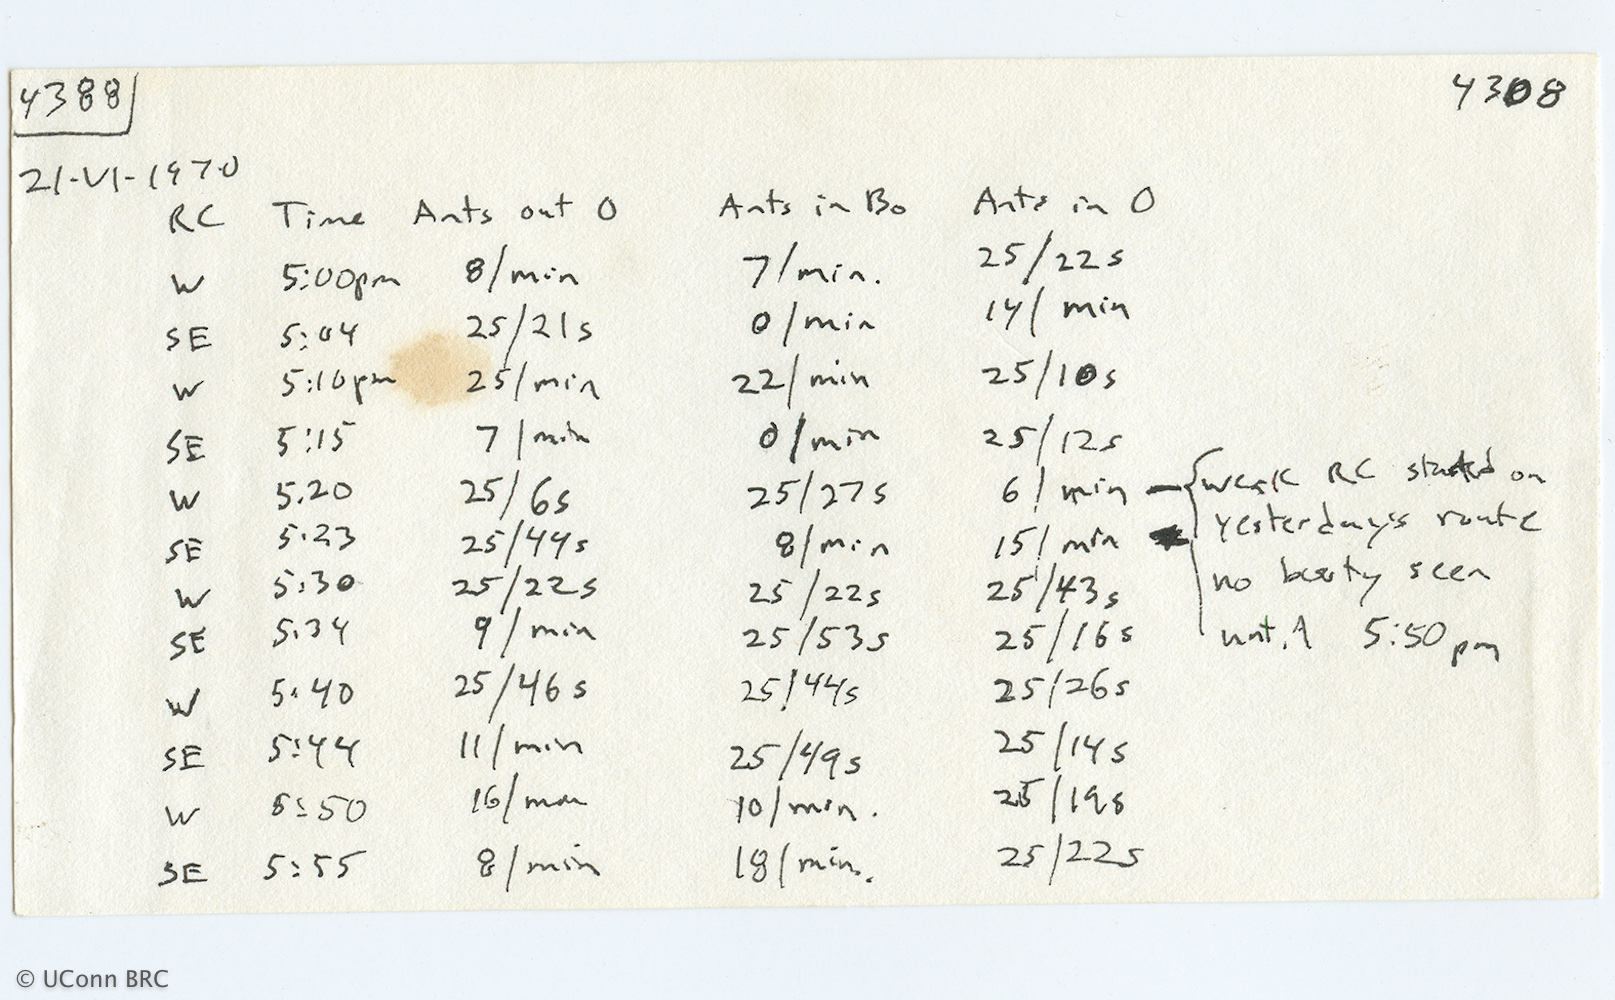 4388 4308
21-VI-1970
RC Time Ants out O Ants in Bo Ants in O
W 5:00pm 8/min 7/min. 25/22s
SE 5:04 25/21s 0/min 14/min
W 5:10pm 25/min 22/min 25/10s
SE 5:15 7/min 0/min 25/12s
W 5:20 25/6s 25/27s 6/min — { weak RC started on
SE 5:23 25/44s 8/min 15/min yesterday's route
W 5:30 25/22s 25/22s 25/43s no booty seen
SE 5:34 9/min 25/53s 25/16s until 5:50pm
W 5:40 25/46s 25/44s 25/26s
SE 5:44 11/min 25/49s 25/14s
W 5:50 16/min 10/min. 25/19s
SE 5:55 8/min 18/min. 25/22s
© UConn BRC